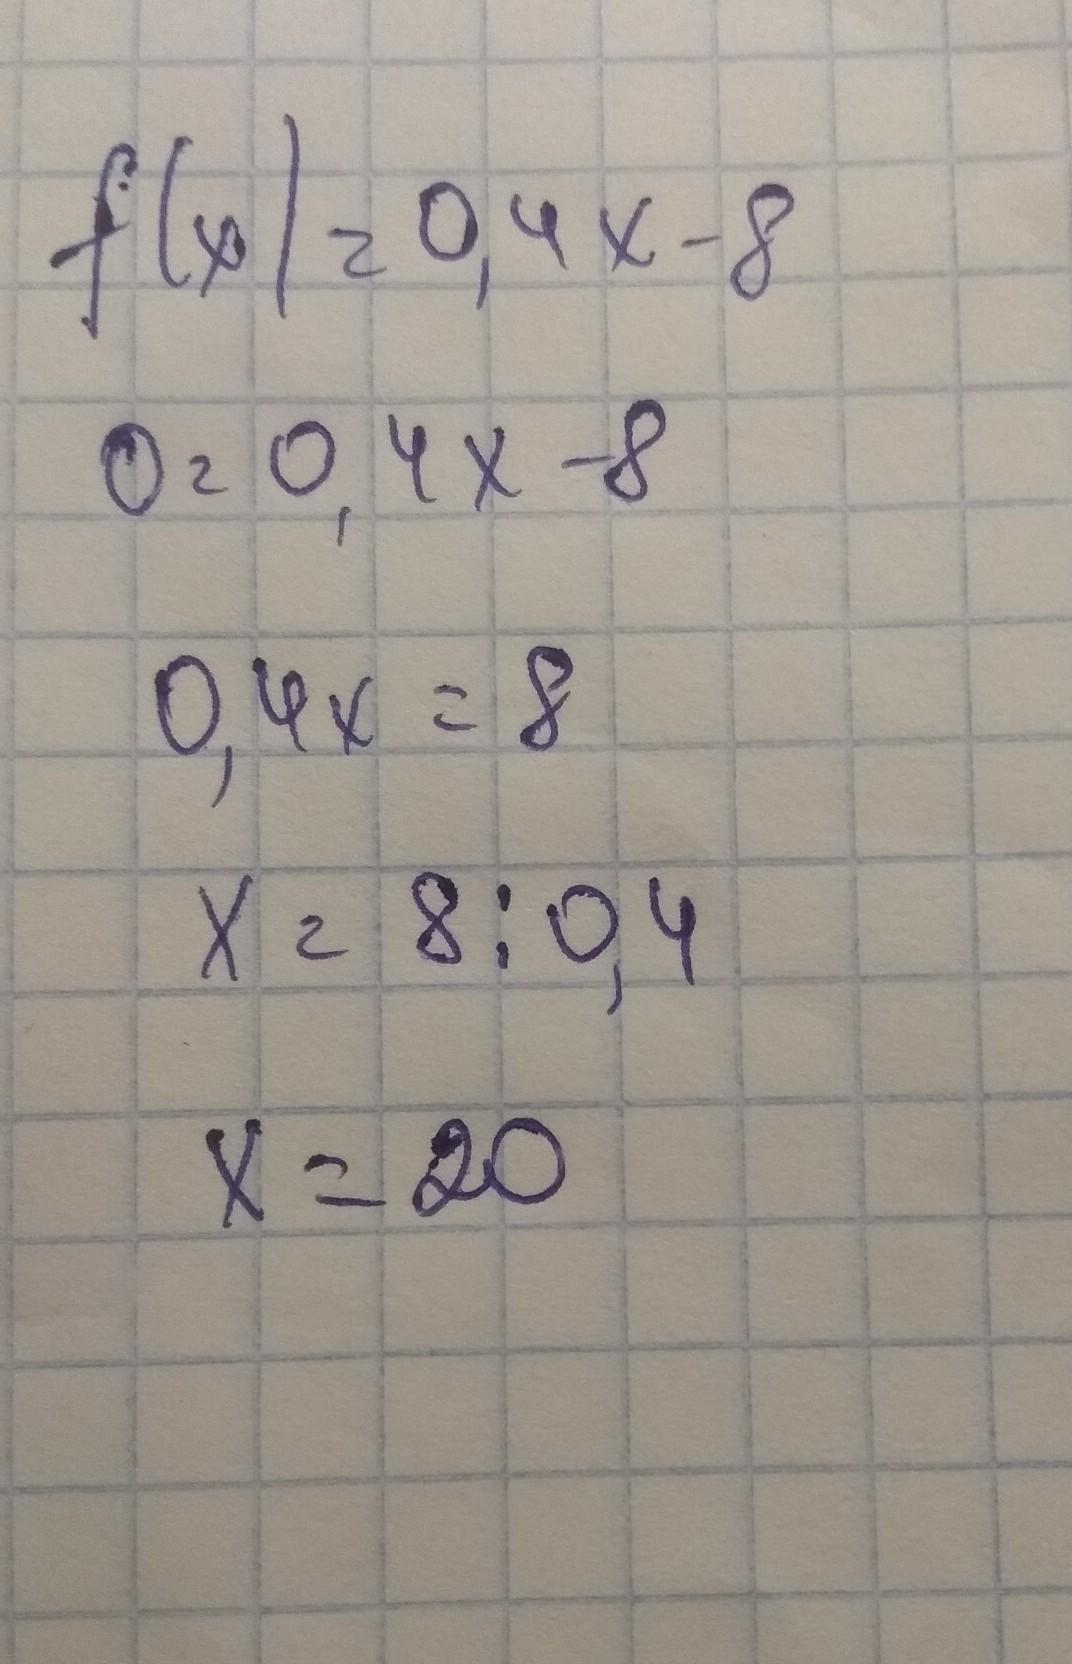 f(x)=0,4x-8
0=0,4x-8
0,4x=8
x=8:0,4
x=20